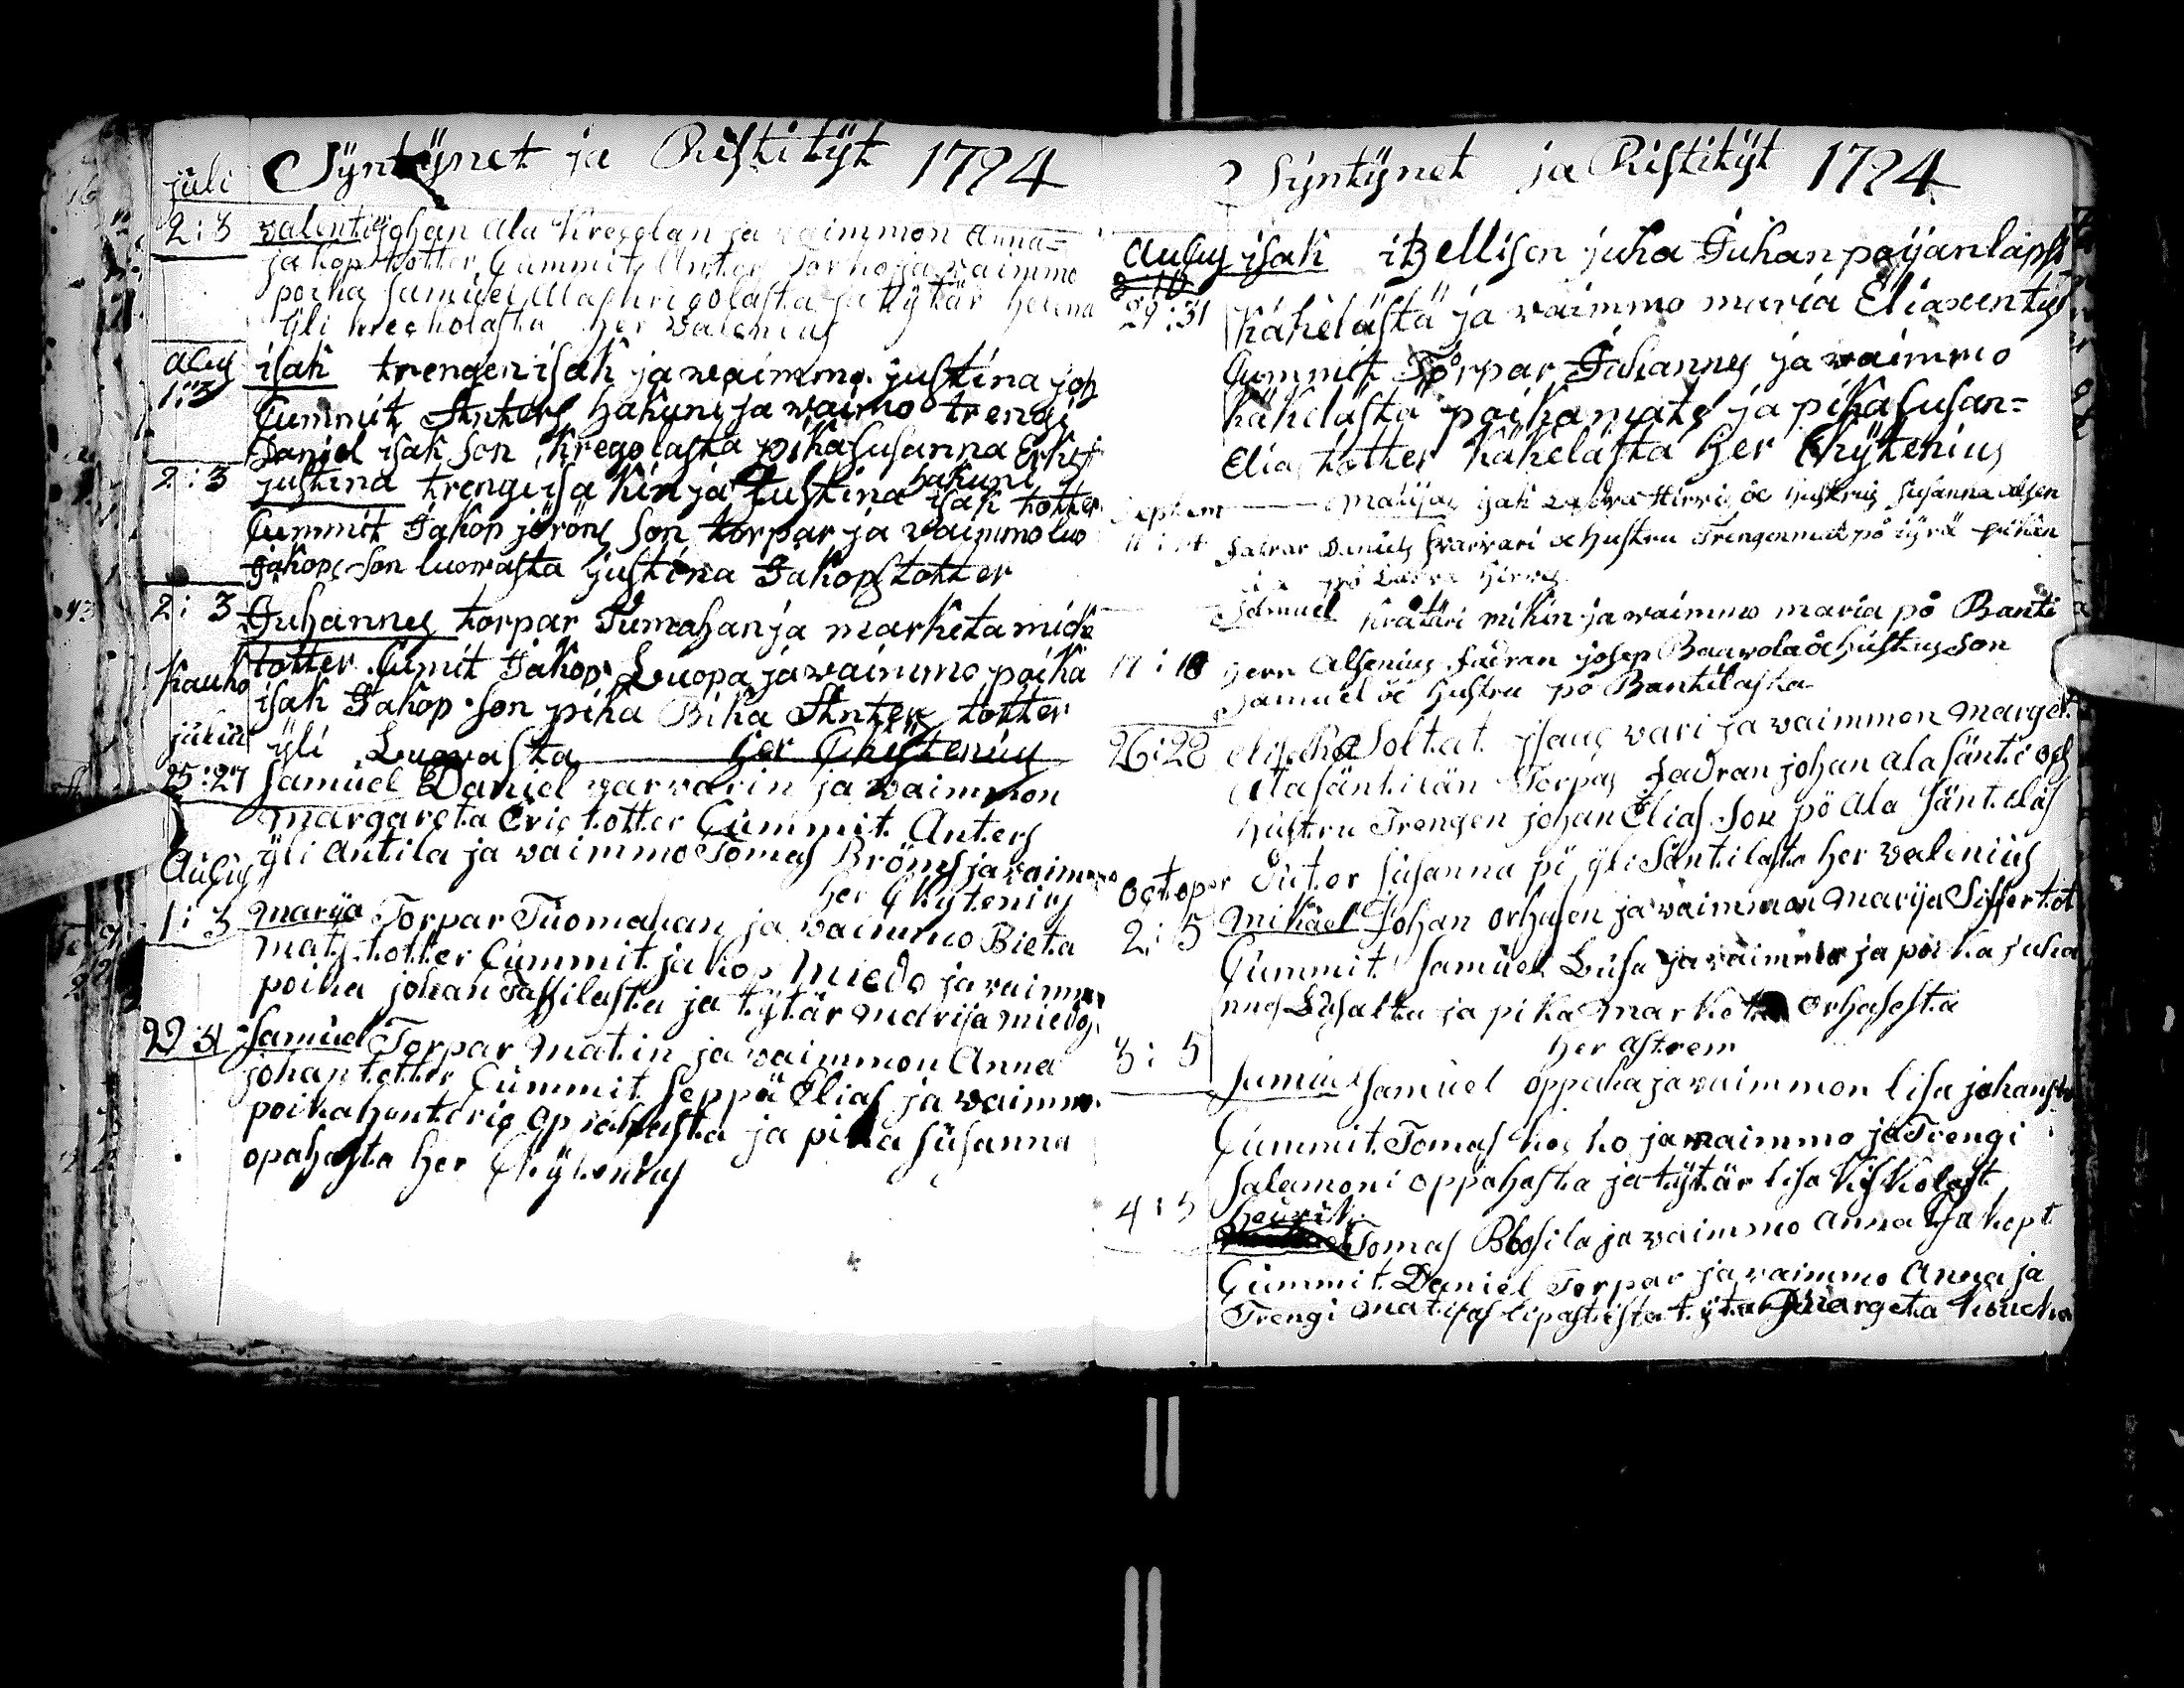 Syntynet ja Ristityt 1794
juli
2:3 valenti johan Ala Kregolan ja vaimmon Anna=
jakop totter Cummit Anter Torho ja vaimmo
poika Samuel Alaskrigolasta ja tytär Helena
yli kregholasta her Valenius
aug
1:3 isak trengen isak ja vaimmo justina joh
Cummit Anters hakuni ja vaimo trengi
Daniel isak son kregolasta pika susanna Erks
2:3 justina trengi isakin ja justina hakuni isak totter
Cummit Jakop jöröns son torpar ja vaimmo luo
Jakop son luowasta justina Jakops totter
2:3 Juhannes torpar Tumahan ja marketa mick
totter Cumit Jakop Luopa ja vaimmo poika
kauko
isak Jakop son pika Bika Anters totter
yli Luowasta her Chytenius
juliu
25:27 Samuel Daniel varvarin ja vaimmon
margareta Eric totter Cummit Anters
yli Antila ja vaimmo Tomas Bröms ja vaimmo
her Chytenius
Augus
1:3 Marija Torpar Tuomahan ja vaimmo Bieta
mats totter Cummit jakop miedo ja vaimmo
poika johan Tassilasta ja tytär marija miedo
29:31 Samuel Torpar Matin ja vaimmon Anna
johan totter Cummit Seppä Elias ja vaimmo
poika henteric opahasta ja pika susanna
opahasta her Chytenius
Syntynet ja Ristityt 1794
augus
29:31 isak itzellisen juha Juhan poijan lapsi
kähelästä ja vaimmo maria Eliaxen tyt
Cummit Torpar Juhannes ja vaimmo
kähelästä poika mats ja pika susan=
Elias totter kähelästä her Chytenius
Septem
11:14 matijas isak Ladva Hirvi åc hustrus Susanna olsen
Fadrar Daniels varvari åc hustru Trengen mat på syrä pikan
på Ladva Hirvis
Samuel Kratari mikin ja vaimmo maria på Banti
17:18 herr Alsenius fadran josep Bauvola åc hustrus son
Samuel åc hustru på Bantilasta
26:28 elisaka Soltat isaus vari ja vaimmon marget
Alasäntilän Torpas Fadran johan ala Sänti och
hustru Trengen johan Elias son på ala säntelas
Duter susanna på yli Säntilasta her valenius
octoper
2:5 Mikael Johan orhasen ja vaimmon marija Siffer tot
Cummit Samuel Lusa ja vaimmo ja poika juha
nnes Lusalta ja pika marketa orhasesta
her astrem
3:5 Samuel Samuel oppaha ja vaimmon lisa johanst
Cummit Tomas kosko ja vaimmo ja Trengi
Salamoni oppahasta ja tytär lisa kiskolast
4:5 heirik
Tomas Blosila ja vaimmo anna jakopt
Cummit Daniel Torpar ja vaimmo Anna ja
Trengi matijas lipastista tytär Margeta kouko